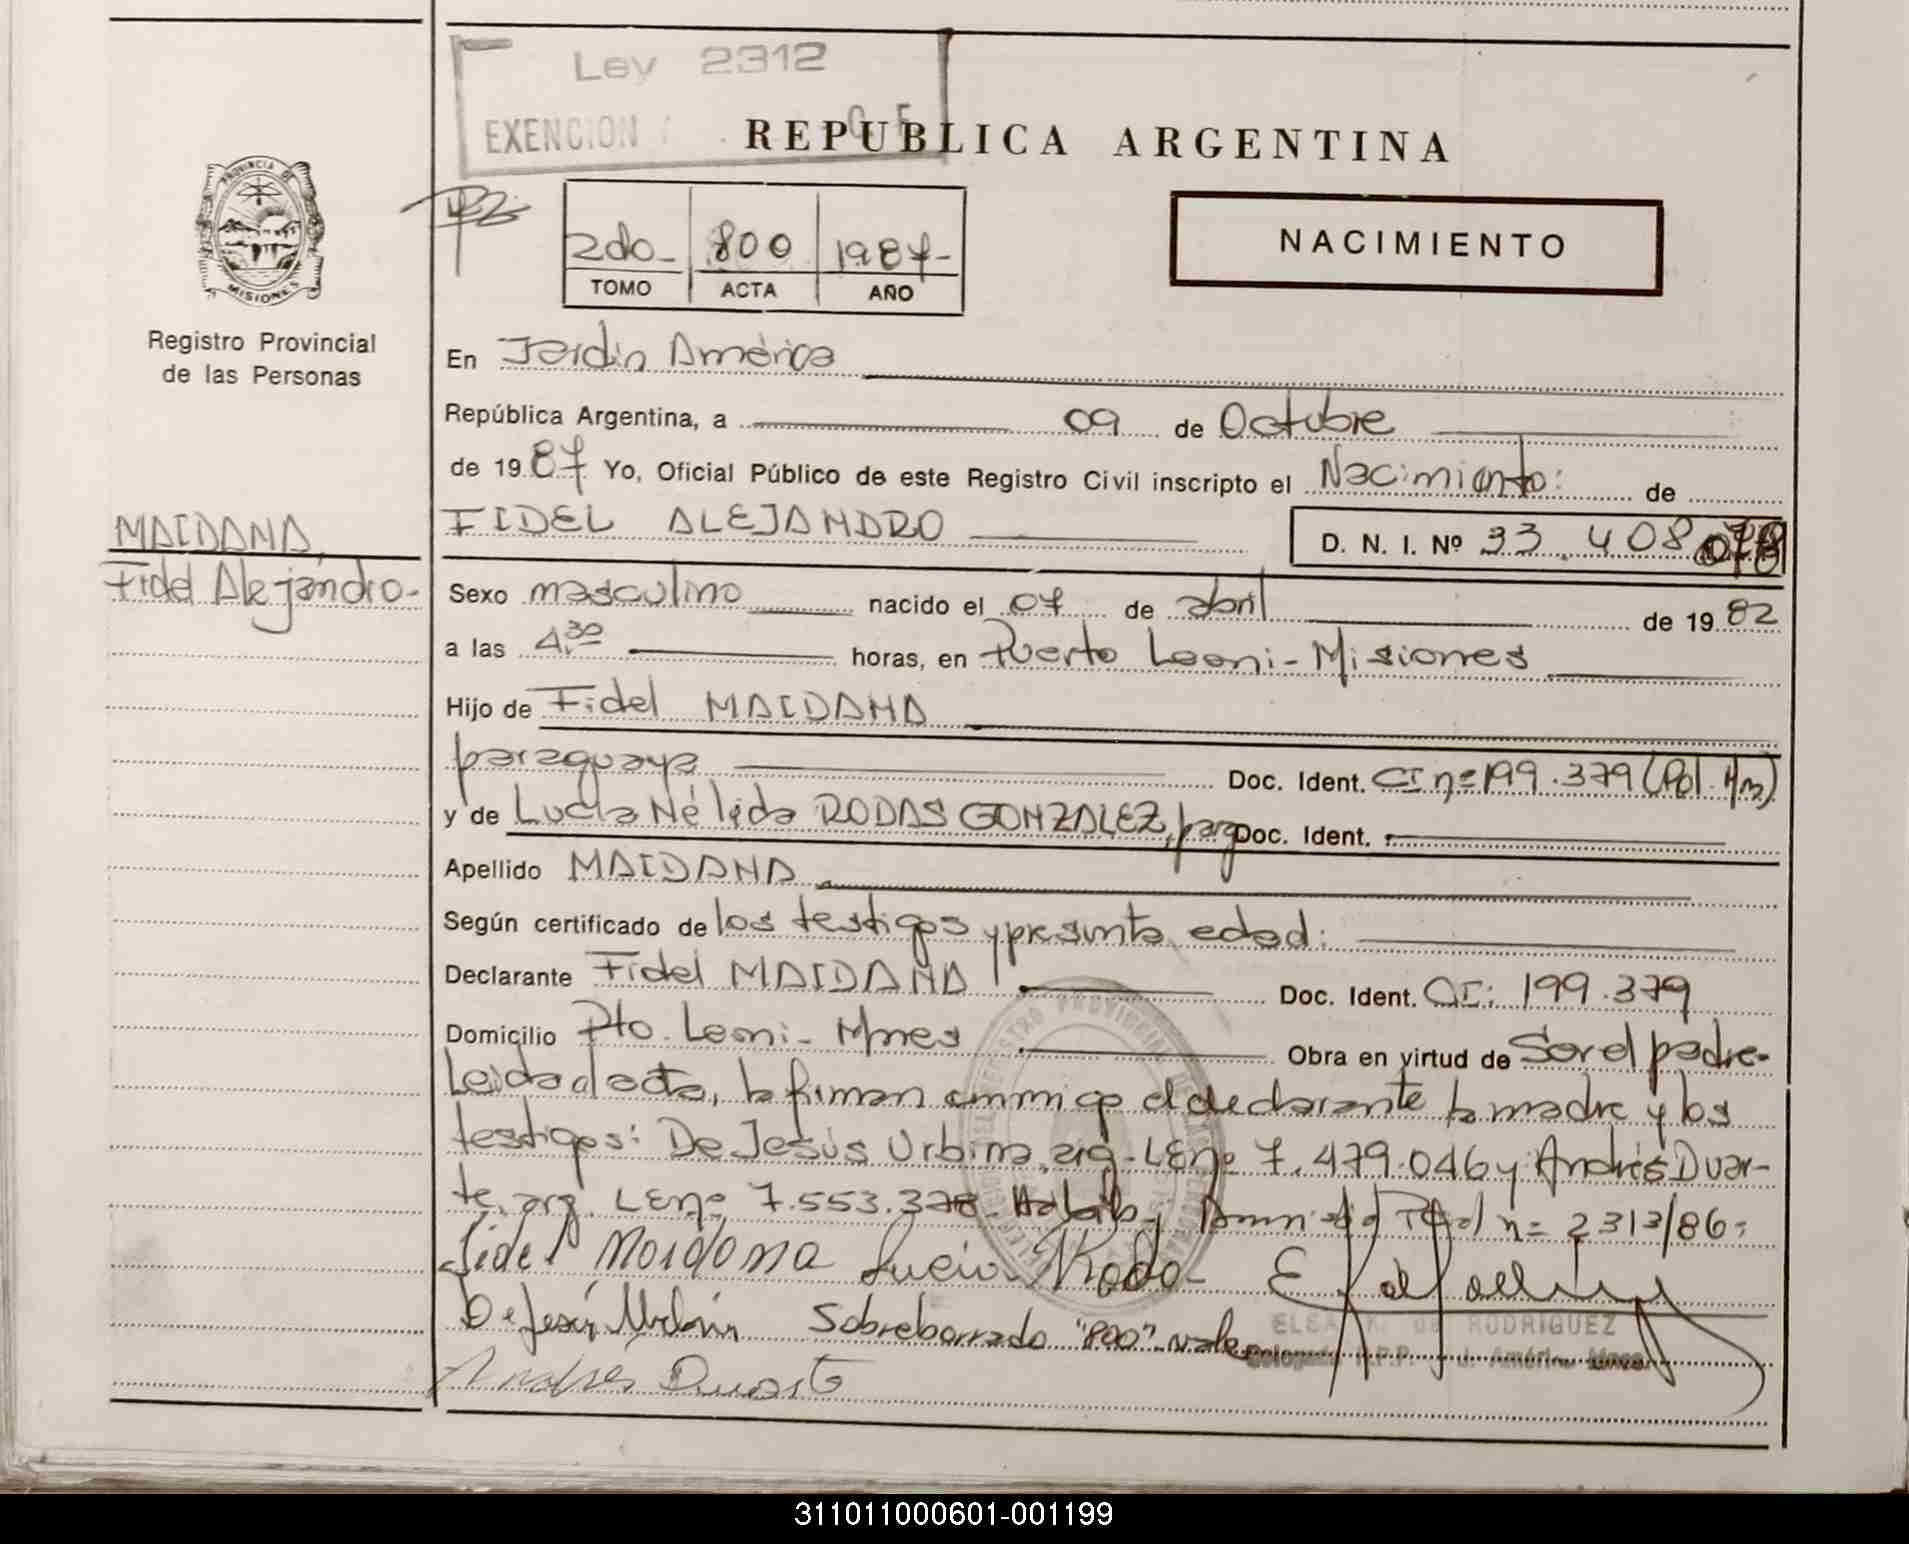 Ley 2312
EXENCION
REPUBLICA ARGENTINA
PROVINCIA DE
MISIONES
Registro Provincial
de las Personas
2do_ 800 1987-
TOMO ACTA AÑO
NACIMIENTO
En Jardín América
República Argentina, a 09 de Octubre
de 1987 Yo, Oficial Público de este Registro Civil inscripto el Nacimiento: de
MAIDANA,
Fidel Alejandro-
FIDEL ALEJANDRO D. N. I. Nº 33.408.078
Sexo masculino nacido el 07 de abril de 1982
a las 4,30 horas, en Puerto Leoni-Misiones
Hijo de Fidel MAIDANA
paraguaya Doc. Ident. CI nº 199.379 (Pol.
y de Lucía Nélida RODAS GONZALEZ, parg Doc. Ident.
Apellido MAIDANA
Según certificado de los testigos y presunta edad:
Declarante Fidel MAIDANA Doc. Ident. CI: 199.379
Domicilio Pto. Leoni- Mnes Obra en virtud de Ser el padre-
Leída el acta, la firman conmigo el declarante la madre y los
testigos: De Jesús Urbina, arg- LE nº 7.479.046 y Andrés Duar-
te, arg. LE nº 7.553.378. nº 2313/86:
Fidel Maidana Lucia Roda
De Jesús Urbina Sobreborrado "800" vale
ELSA K. de RODRIGUEZ
Andrés Duarte
311011000601-001199